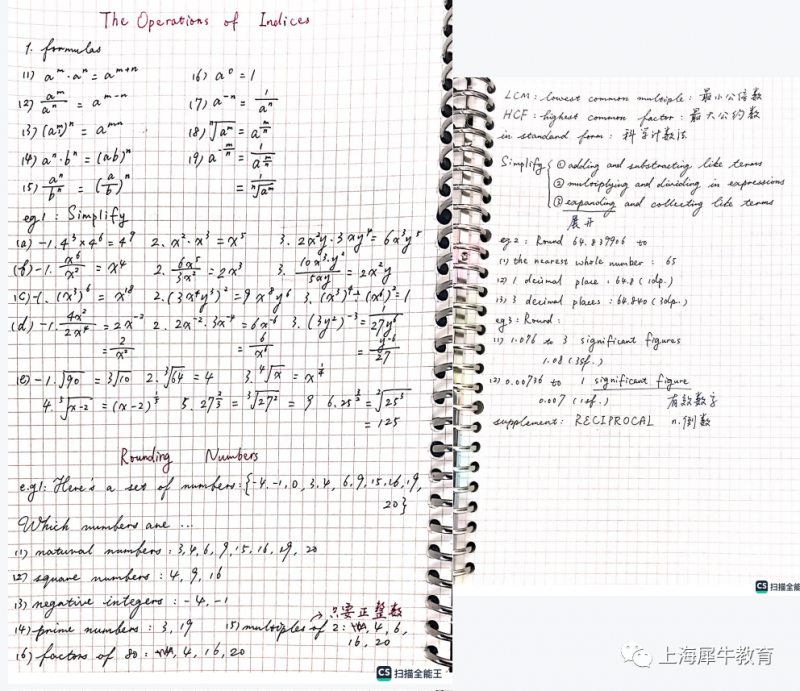 The Operations of Indices
1. formulas
(1) a^m · a^n = a^(m+n)
(6) a^0 = 1
(2) a^m/a^n = a^(m-n)
(7) a^(-n) = 1/a^n
(3) (a^m)^n = a^(mn)
(8) ⁿ√a^m = a^(m/n)
(4) a^n · b^n = (ab)^n
(9) a^(-m/n) = 1/a^(m/n)
(5) a^n/b^n = (a/b)^n
= 1/ⁿ√a^m
eg1: Simplify
(a) -1. 4^3 × 4^6 = 4^9 2. x^2 · x^3 = x^5 3. 2x^2y · 3xy^4 = 6x^3y^5
(b) -1. x^6/x^2 = x^4 2. 6x^5/3x^2 = 2x^3 3. 10x^3y^2/5xy = 2x^2y
(c) -1. (x^3)^6 = x^18 2. (3x^4y^3)^2 = 9x^8y^6 3. (x^3)^4 ÷ (x^6)^2 = 1
(d) -1. 4x^2/2x^4 = 2x^-2 2. 2x^-2 · 3x^-4 = 6x^-6 3. (3y^2)^-3 = 1/27y^6
= 2/x^2 = 6/x^6 = y^-6/27
(e) -1. √90 = 3√10 2. ³√64 = 4 3. ⁴√x = x^(1/4)
4. ⁵√x-2 = (x-2)^(1/5) 5. 27^(2/3) = ³√27^2 = 9 6. 25^(3/2) = ²√25^3
= 125
Rounding Numbers
e.g1: Here's a set of numbers: {-4, -1, 0, 3, 4, 6, 9, 15, 16, 19,
20}
Which numbers are ...
(1) natural numbers: 3, 4, 6, 9, 15, 16, 19, 20
(2) square numbers: 4, 9, 16
(3) negative integers: -4, -1
→只要正整数
(4) prime numbers: 3, 19 (5) multiples of 2: 4, 6,
16, 20
(6) factors of 80: 4, 16, 20
CS 扫描全能王
LCM: lowest common multiple: 最小公倍数
HCF: highest common factor: 最大公约数
in standard form: 科学计数法
Simplify { ① adding and substracting like terms
② multiplying and dividing in expressions
③ expanding and collecting like terms
展开
eg2: Round 64.839906 to
(1) the nearest whole number: 65
(2) 1 decimal place: 64.8 (1dp.)
(3) 3 decimal places: 64.840 (3dp.)
eg3: Round:
(1) 1.076 to 3 significant figures
1.08 (3sf.)
(2) 0.00736 to 1 significant figure
0.007 (1sf.) 有效数字
supplement: RECIPROCAL n.倒数
CS 扫描全能
上海犀牛教育